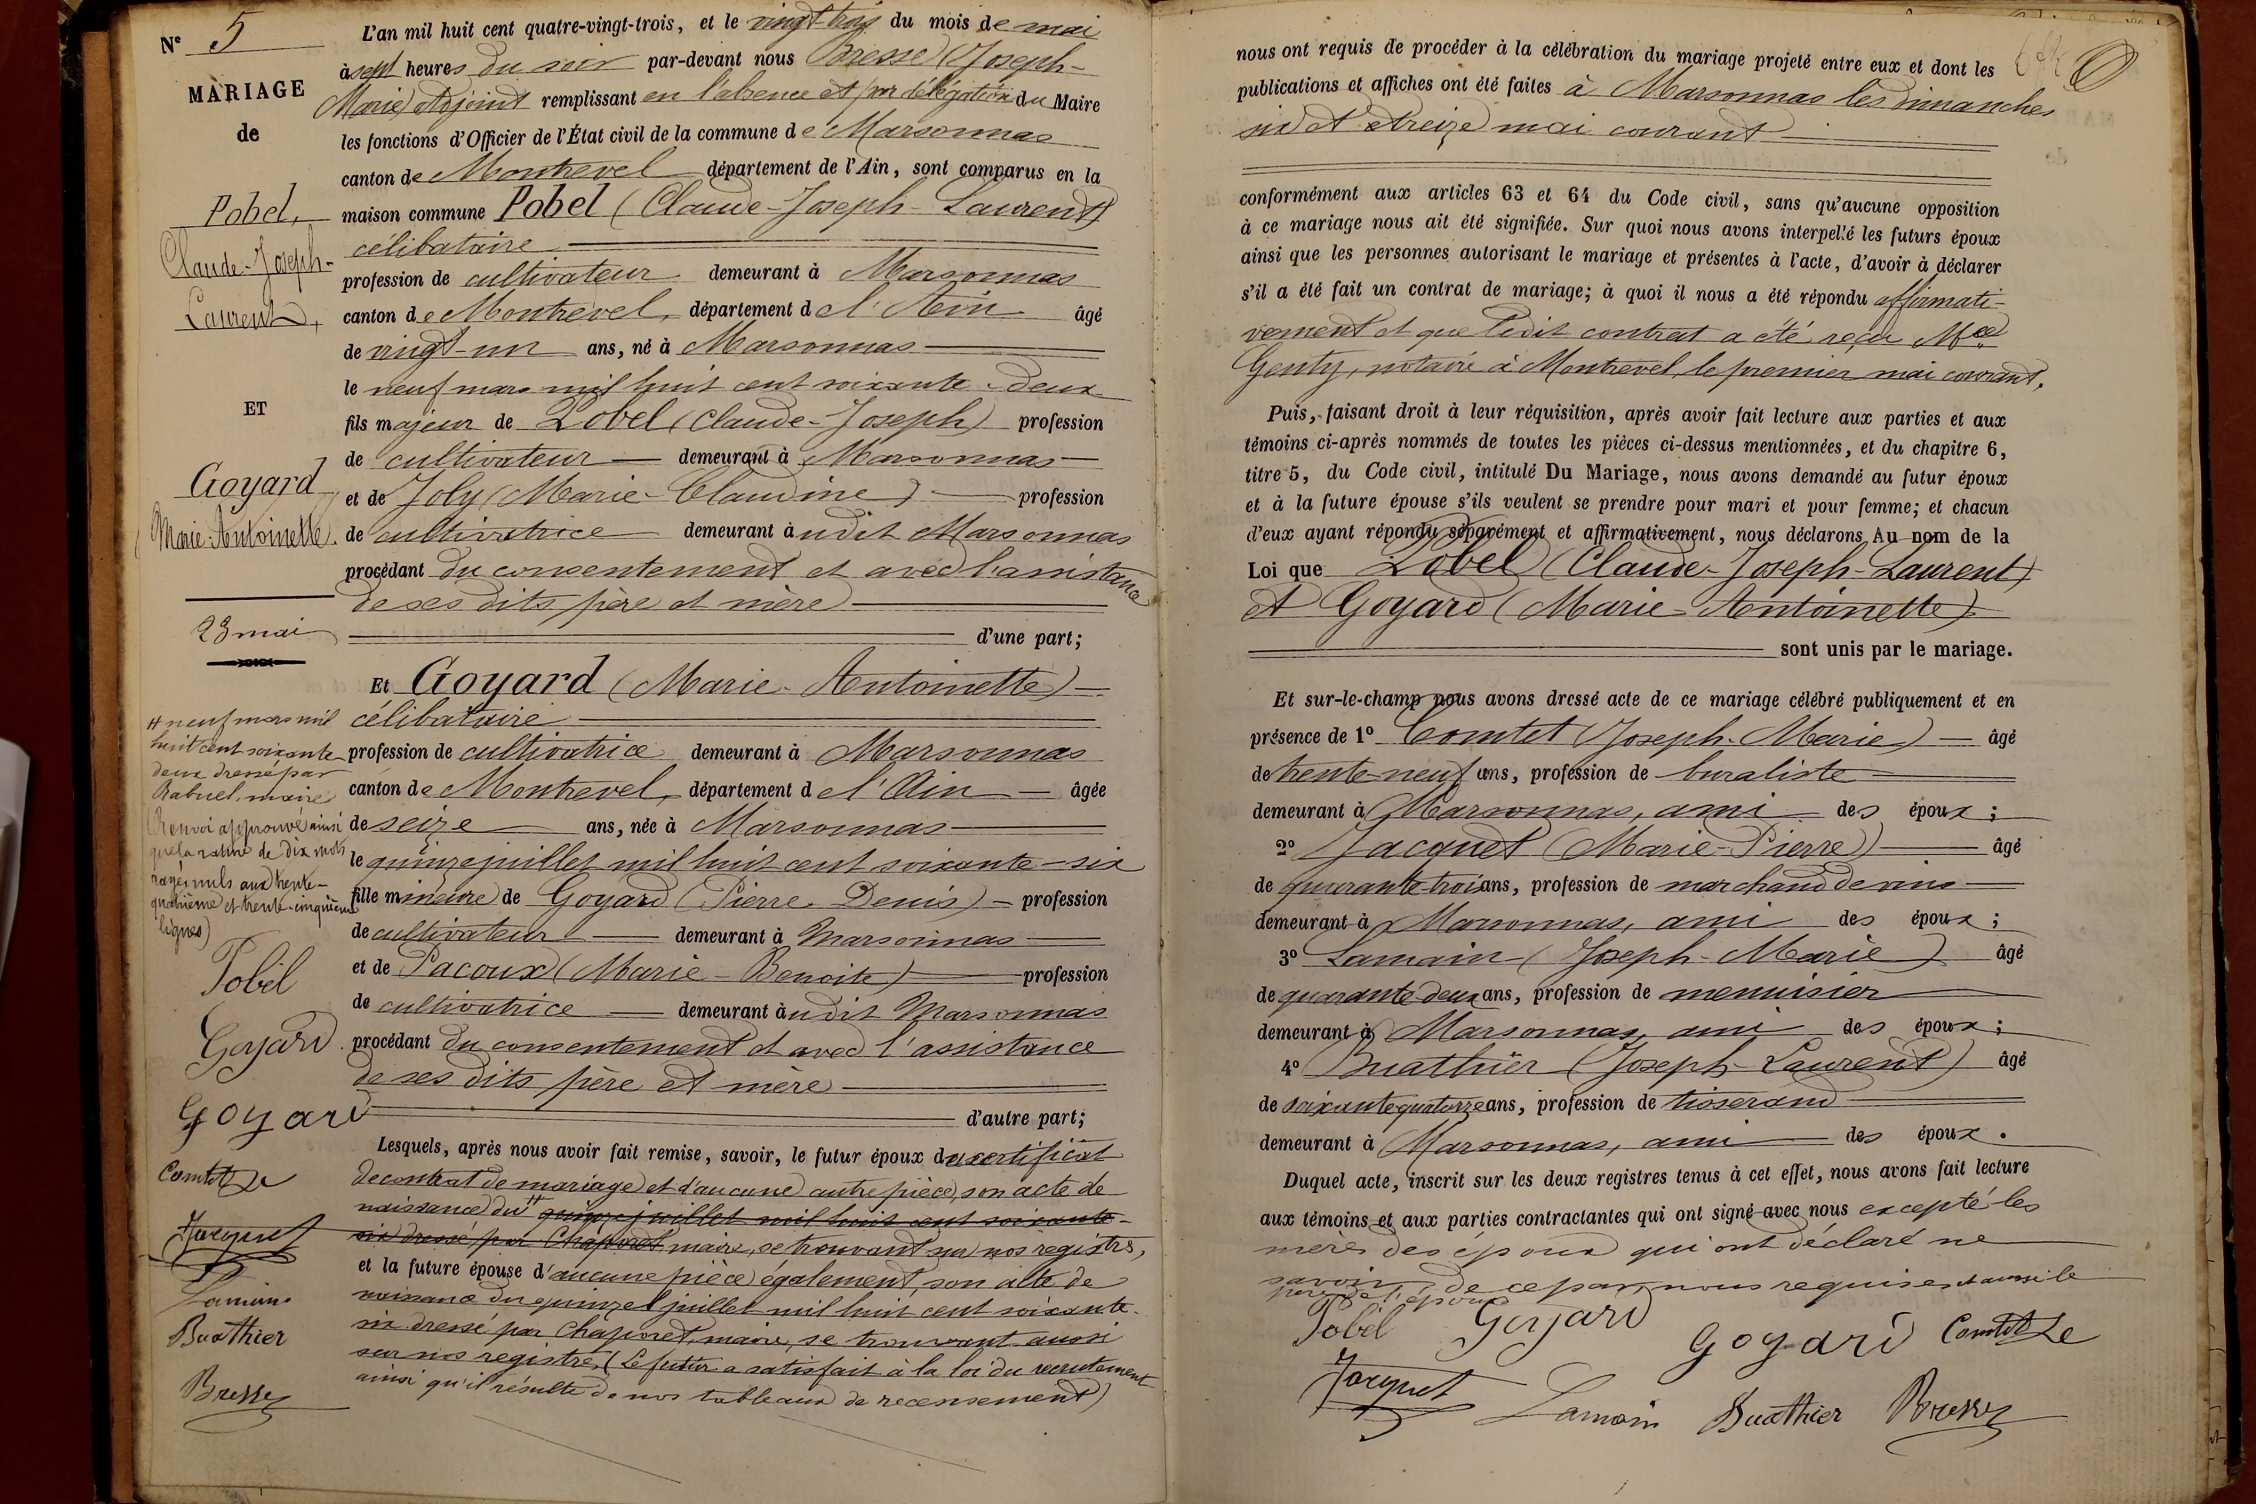 Nº 5
MARIAGE
de
Pobel,
Claude-Joseph-
Laurent,
ET
Goyard
Marie-Antoinette.
23 mai
# neuf mars mil
huit cent soixante
deux dressé par
Rabuel, maire
(Renvoi approuvé ainsi
que la rature de dix mots
rayés nuls aux trente-
quatrième et trente-cinquième
lignes)
Pobel
Goyard
Goyard
Comtet
Jacquet
Lamain
Buathier
Bresse
L'an mil huit cent quatre-vingt-trois, et le vingt-trois du mois de mai
à sept heures du soir par-devant nous Bresse (Joseph-
Marie) adjoint remplissant en l'absence et par délégation du Maire
les fonctions d'Officier de l'État civil de la commune de Marsonnas
canton de Montrevel département de l'Ain, sont comparus en la
maison commune Pobel (Claude-Joseph-Laurent)
célibataire
profession de cultivateur demeurant à Marsonnas
canton de Montrevel, département de l'Ain âgé
de vingt-un ans, né à Marsonnas
le neuf mars mil huit cent soixante-deux
fils majeur de Pobel (Claude-Joseph) profession
de cultivateur demeurant à Marsonnas
et de Joly (Marie-Claudine) profession
de cultivatrice demeurant audit Marsonnas
procédant du consentement et avec l'assistance
de ses dits père et mère
d'une part;
Et Goyard (Marie-Antoinette)
célibataire
profession de cultivatrice demeurant à Marsonnas
canton de Montrevel, département de l'Ain âgée
de seize ans, née à Marsonnas
le quinze juillet mil huit cent soixante-six
fille mineure de Goyard (Pierre-Denis) profession
de cultivateur demeurant à Marsonnas
et de Pacoux (Marie-Benoite) profession
de cultivatrice demeurant audit Marsonnas
procédant du consentement et avec l'assistance
de ses dits père et mère
d'autre part;
Lesquels, après nous avoir fait remise, savoir, le futur époux du certificat
de contrat de mariage et d'aucune autre pièce, son acte de
naissance du # quinze juillet mil huit cent soixante-
six dressé par Chapuret maire, se trouvant sur nos registres,
et la future épouse d'aucune pièce également, son acte de
naissance du quinze juillet mil huit cent soixante-
six dressé par Chapuret, maire, se trouvant aussi
sur nos registre, (Le futur a satisfait à la loi du recrutement
ainsi qu'il résulte de nos tableaux de recensement)
nous ont requis de procéder à la célébration du mariage projeté entre eux et dont les
publications et affiches ont été faites à Marsonnas les dimanches
six et treize mai courant
conformément aux articles 63 et 64 du Code civil, sans qu'aucune opposition
à ce mariage nous ait été signifiée. Sur quoi nous avons interpellé les futurs époux
ainsi que les personnes autorisant le mariage et présentes à l'acte, d'avoir à déclarer
s'il a été fait un contrat de mariage; à quoi il nous a été répondu affirmati-
vement et que ledit contrat a été reçu Mce
Genty, notaire à Montrevel, le premier mai courant,
Puis, faisant droit à leur réquisition, après avoir fait lecture aux parties et aux
témoins ci-après nommés de toutes les pièces ci-dessus mentionnées, et du chapitre 6,
titre 5, du Code civil, intitulé Du Mariage, nous avons demandé au futur époux
et à la future épouse s'ils veulent se prendre pour mari et pour femme; et chacun
d'eux ayant répondu séparément et affirmativement, nous déclarons Au nom de la
Loi que Pobel (Claude-Joseph-Laurent)
et Goyard (Marie-Antoinette)
sont unis par le mariage.
Et sur-le-champ nous avons dressé acte de ce mariage célébré publiquement et en
présence de 1º Comtet (Joseph-Marie) âgé
de trente-neuf ans, profession de buraliste
demeurant à Marsonnas, ami des époux;
2º Jacquet (Marie-Pierre) âgé
de quarante-trois ans, profession de marchand de vins
demeurant à Marsonnas, ami des époux;
3º Lamain (Joseph-Marie) âgé
de quarante-deux ans, profession de menuisier
demeurant à Marsonnas, ami des époux;
4º Buathier (Joseph-Laurent) âgé
de soixante-quatorze ans, profession de tisserand
demeurant à Marsonnas, ami des époux.
Duquel acte, inscrit sur les deux registres tenus à cet effet, nous avons fait lecture
aux témoins et aux parties contractantes qui ont signé avec nous excepté les
mères des époux qui ont déclaré ne
savoir, de ce par nous requises et aussi le
père de l'époux
Pobel Goyard Goyard Comtet
Jacquet Lamain Buathier Bresse